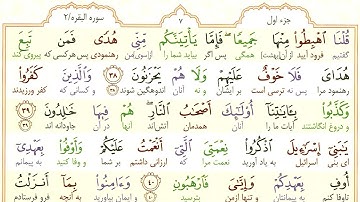 جزء اول ۷ سوره البقره/۲
قُلْنَا اهْبِطُوا مِنْهَا جَمِيعًا فَإِمَّا يَأْتِيَنَّكُم مِّنِّي هُدًى فَمَن تَبِعَ
گفتیم فرود آیید از آن(بهشت) همگی پس اگر بیاید شما را از من رهنمودی پس هرکسی که پیروی کند
هُدَايَ فَلَا خَوْفٌ عَلَيْهِمْ وَلَا هُمْ يَحْزَنُونَ ﴿۳۸﴾ وَالَّذِينَ كَفَرُوا
رهنمودم را پس نه ترسی است بر آنان و نه آنان اندوهگین شوند و کسانی که کفر ورزیدند
وَكَذَّبُوا بِآيَاتِنَا أُولَٰئِكَ أَصْحَابُ النَّارِ هُمْ فِيهَا خَالِدُونَ ﴿۳۹﴾
و دروغ انگاشتند آیات ما را آنان همدمان آتش‌اند آنها در آن جاودانه اند
يَا بَنِي إِسْرَائِيلَ اذْكُرُوا نِعْمَتِيَ الَّتِي أَنْعَمْتُ عَلَيْكُمْ وَأَوْفُوا بِعَهْدِي
ای بنی اسرائیل به یاد آورید نعمت مرا که ارزانی داشتم بر شما و وفا کنید به پیمانم
أُوفِ بِعَهْدِكُمْ وَإِيَّايَ فَارْهَبُونِ ﴿۴۰﴾ وَآمِنُوا بِمَا أَنزَلْتُ
تاوفا کنم به پیمانتان و تنها از من بترسید و ایمان آورید به آنچه فرو فرستادم